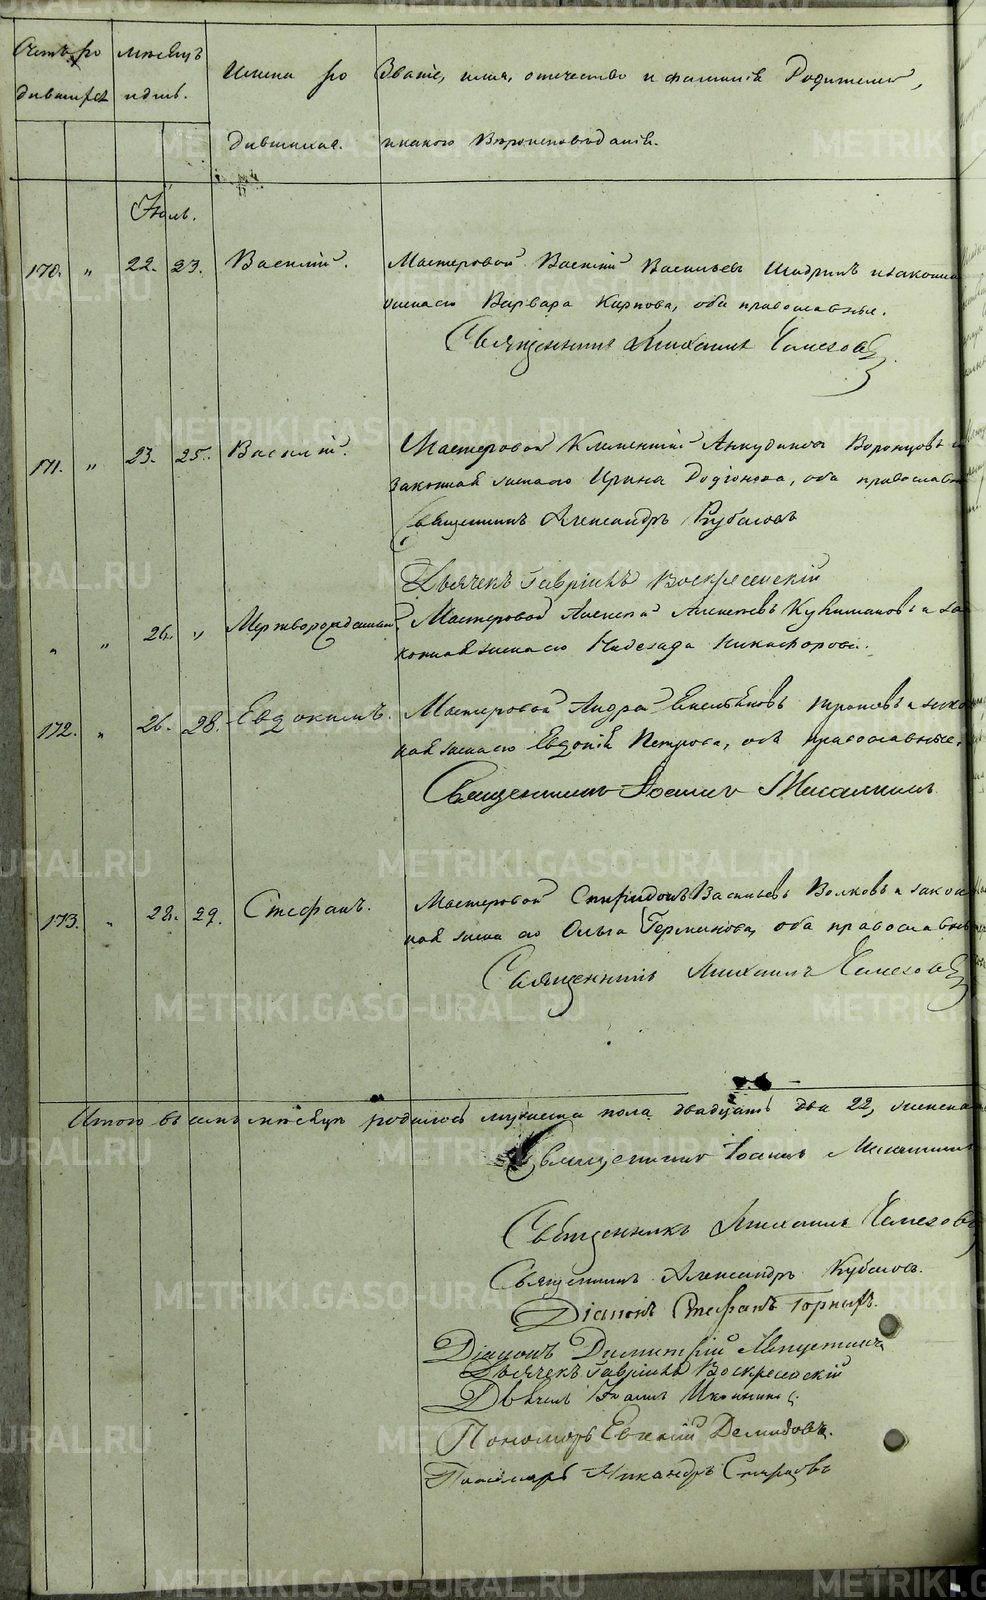 Счетъ ро мѣсяцъ Имена ро Званіе, имя, отечество и фамилія Родителей,
дившихся идни. дившихся. икакого Вѣроисповѣданія.
Іюль.
170. " 22. 23. Василій. Мастеровой Василій Васильевъ Шадринъ изаконная
жена его Варвара Карпова, оба православные.
Священникъ Михаилъ
171. " 23. 25. Василій. Мастеровой Климентій Анкудиновъ Воронцовъ и
законная жена его Ирина Родіонова, оба православ
Священникъ Александръ Кубасовъ
Дьячекъ Гавріилъ Воскресенскій
" " 26. " Мертворожденный. Мастеровой Алексей Алексеевъ и за
конная жена его Надежда Никифорова.
172. " 26. 28. Евдокимъ. Мастеровой Андрей и зако
ная жена его Евдокія Петрова, оба православные.
Священникъ Іоаннъ
173. " 28. 29. Стефанъ. Мастеровой Спиридонъ Васильевъ Волковъ и закон
ная жена его Ольга Германова, оба православны
Священникъ Михаилъ
Итого въ семъ мѣсяцѣ родилось мужеска пола двадцать два 22, женска
Священникъ Іоаннъ
Священникъ Михаилъ
Священникъ Александръ Кубасовъ.
Діаконъ Стефанъ Горныхъ.
Діаконъ Димитрій
Дьячекъ Гавріилъ Воскресенскій
Дьячекъ
Пономарь Евгеній Демидовъ.
Пономарь Никандръ Стярцовъ
METRIKI.GASO-URAL.RU